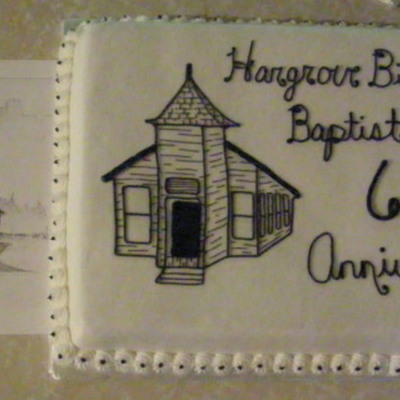 Hargrove Bi
Baptist
6
Anniv